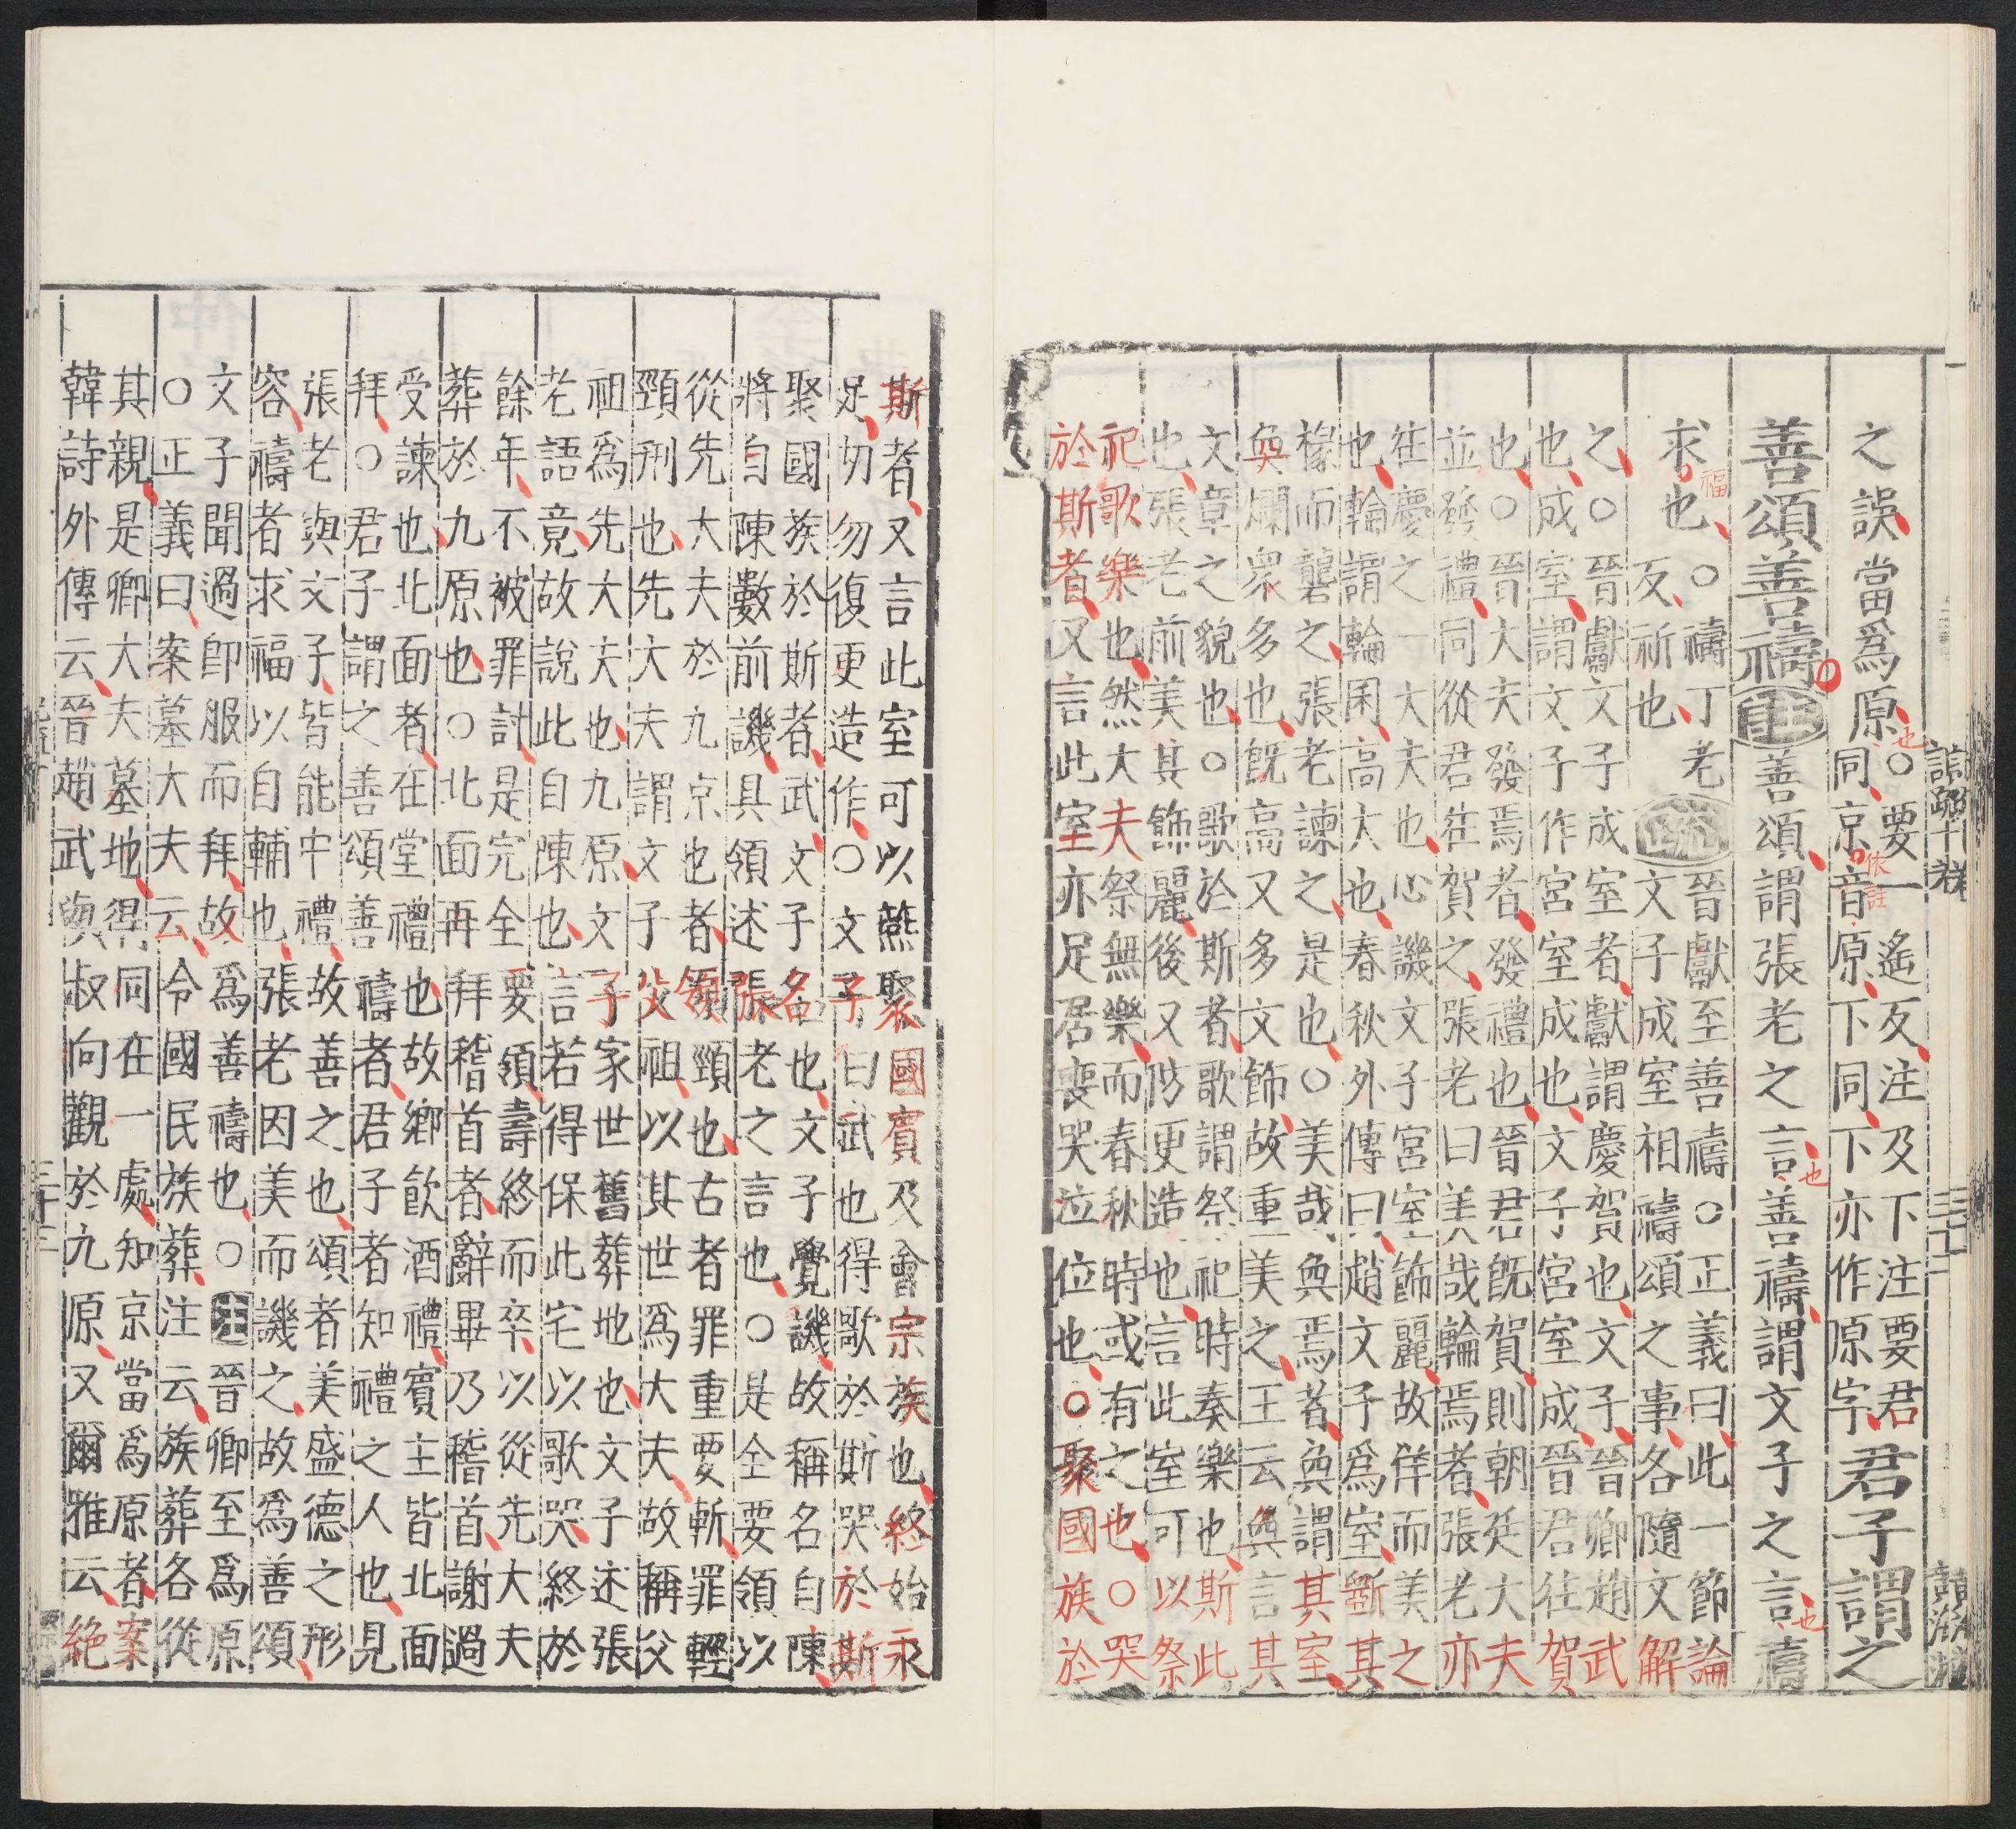 記疏十卷 三十二
之誤當爲原○要一遙反注及下注要君
同京音原下同下亦作原字君子謂之
善頌善禱注善頌謂張老之言善禱謂文子之言禱
也 也 也 依註
求也○禱丁老
福
反祈也
疏晉獻至善禱○正義曰此一節論
文子成室相禱頌之事各隨文解
之○晉獻文子成室者獻謂慶賀也文子晉卿趙武
也成室謂文子作宮室成也文子宮室成晉君往賀
也○晉大夫發焉者發禮也晉君既賀則朝廷大夫
並發禮同從君往賀之張老曰美哉輪焉者張老亦
往慶之一大夫也心譏文子宮室飾麗故佯而美之
也輪謂輪囷高大也春秋外傳曰趙文子爲室斲其
椽而礱之張老諫之是也○美哉奐焉者奐謂其室
奐爛衆多也既高又多文飾故重美之王云奐言其
文章之貌也○歌於斯者歌謂祭祀時奏樂也斯此
也張老前美其飾麗後又防更造也言此室可以祭
祀歌樂也然大夫祭無樂而春秋時或有之也○哭
於斯者又言此室亦足居喪哭泣位也○聚國族於
斯者又言此室可以燕聚國賓及會宗族也終始永
足切勿復更造作○文子曰武也得歌於斯哭於斯
聚國族於斯者武文子名也文子覺譏故稱名自陳
將自陳數前譏具領述張老之言也○是全要領以
從先大夫於九京也者領頸也古者罪重要斬罪輕
頸刑也先大夫謂文子父祖以其世爲大夫故稱父
祖爲先大夫也九原文子家世舊葬地也文子述張
老語竟故說此自陳也言若得保此宅以歌哭終於
餘年不被罪討是完全要領壽終而卒以從先大夫
葬於九原也○北面再拜稽首者辭畢乃稽首謝過
受諫也北面者在堂禮也故鄉飲酒禮賓主皆北面
拜○君子謂之善頌善禱者君子者知禮之人也見
張老與文子皆能中禮故善之也頌者美盛德之形
容禱者求福以自輔也張老因美而譏之故爲善頌
文子聞過卽服而拜故爲善禱也○注晉卿至爲原
○正義曰案墓大夫云令國民族葬注云族葬各從
其親是卿大夫墓地得同在一處知京當爲原者案
韓詩外傳云晉趙武與叔向觀於九原又爾雅云絶